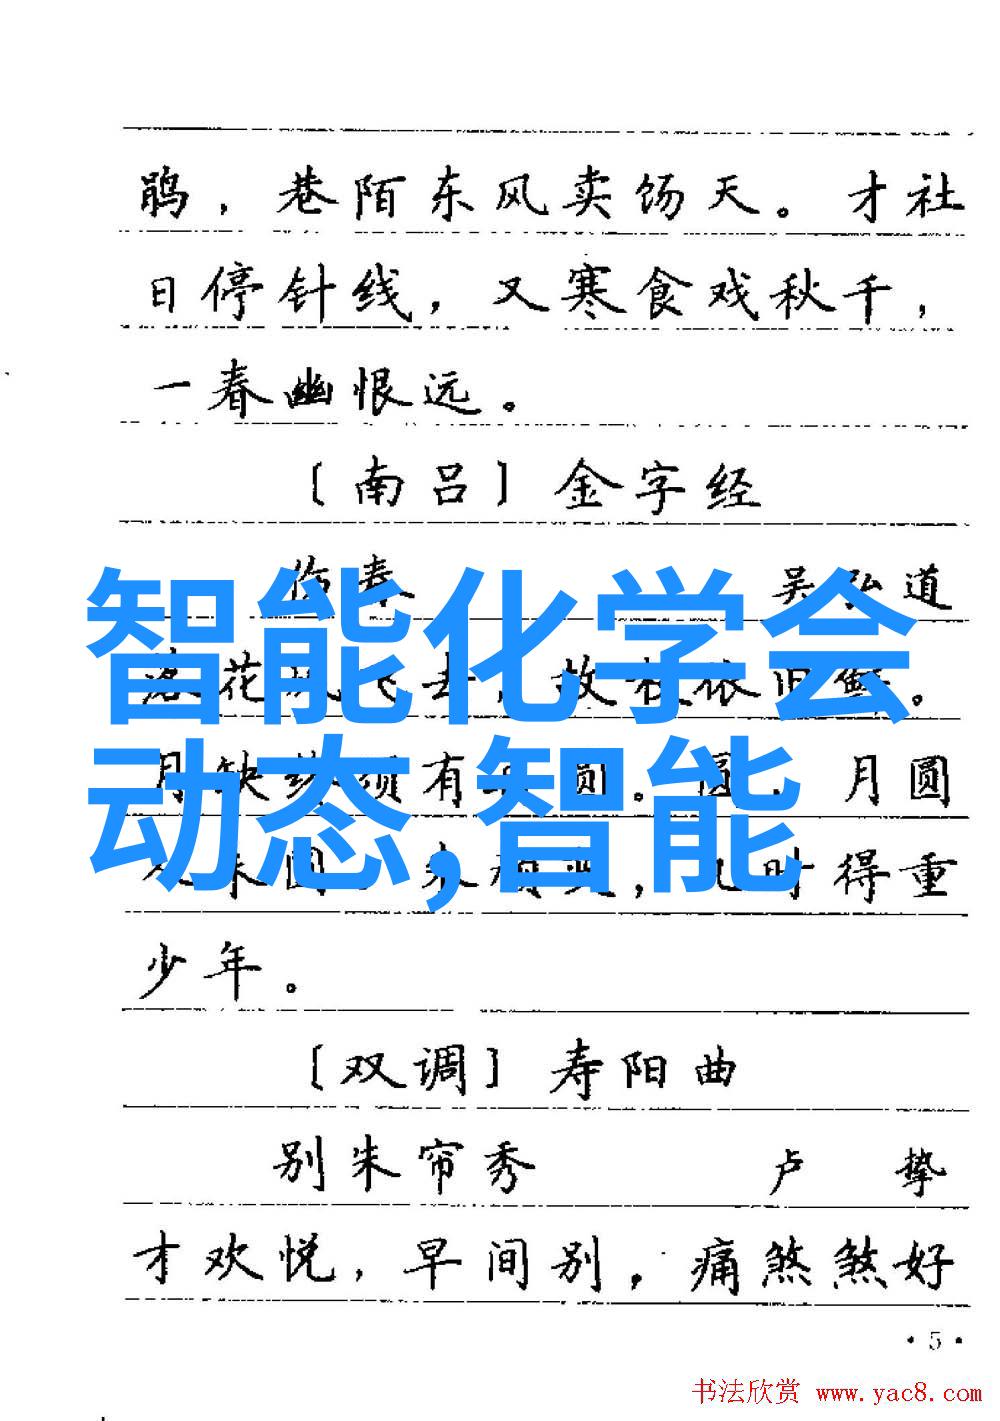 鹃，巷陌东风卖饧天。才社
日停针线，又寒食戏秋千，
一春幽恨远。
〔南吕〕金字经
伤春 吴弘道
落花风飞去，故枝依旧鲜。
月缺终须有再圆。圆，月圆
人未圆。朱颜变，几时得重
少年。
〔双调〕寿阳曲
别朱帘秀 卢挚
才欢悦，早间别，痛煞煞好
智能化学会
动态,智能
·5·
书法欣赏 www.yac8.com